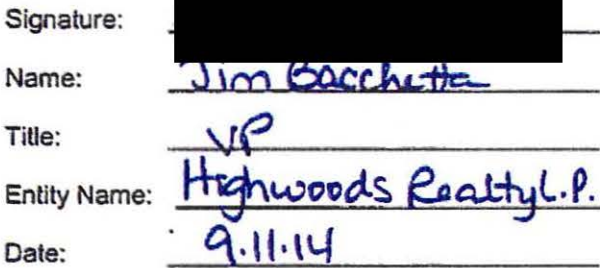 Signature:
Name: Jim Bacchetta
Title: VP
Entity Name: Highwoods Realty L.P.
Date: 9.11.14